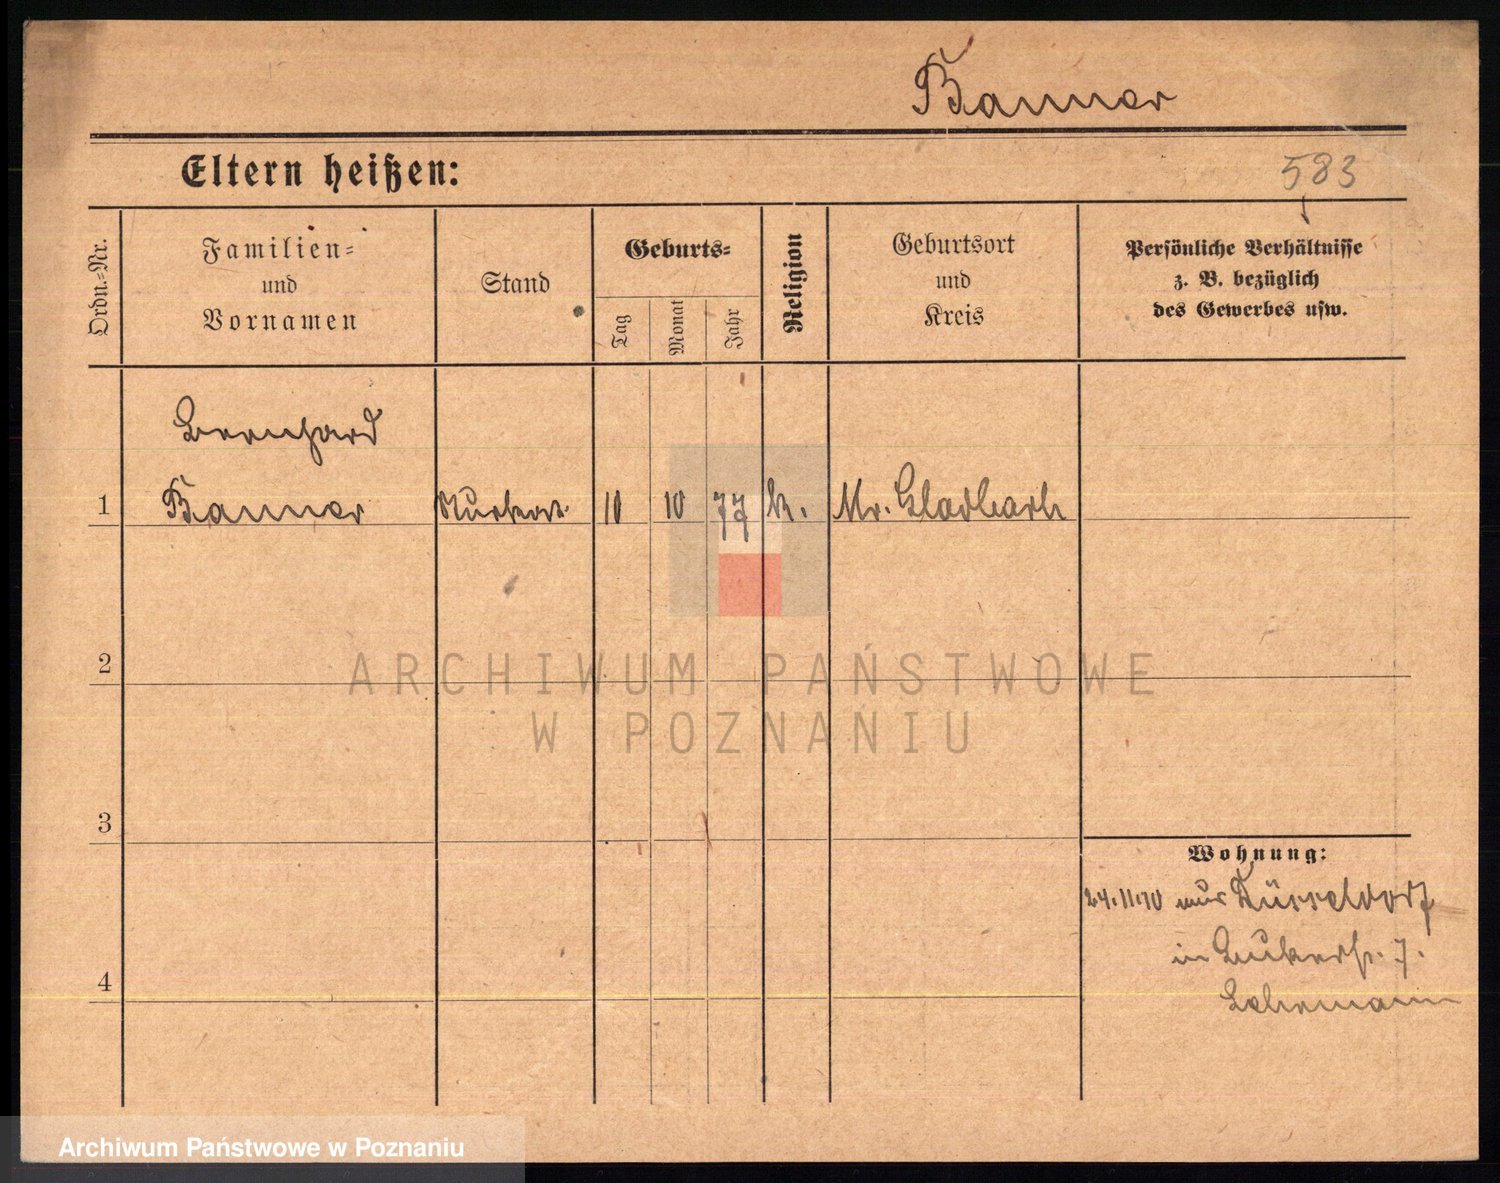 Banner
Eltern heißen:
583
Ordn.-Nr.
Familien-
und
Vornamen
Stand
Geburts-
Tag
Monat
Jahr
Religion
Geburtsort
und
Kreis
Persönliche Verhältnisse
z. B. bezüglich
des Gewerbes usw.
Bernhard
1 Banner 10 10 77 k. M. Gladbach
2
3
4
ARCHIWUM PAŃSTWOWE
W POZNANIU
Wohnung:
24.11.10 aus Düsseldorf
in 7.
Archiwum Państwowe w Poznaniu